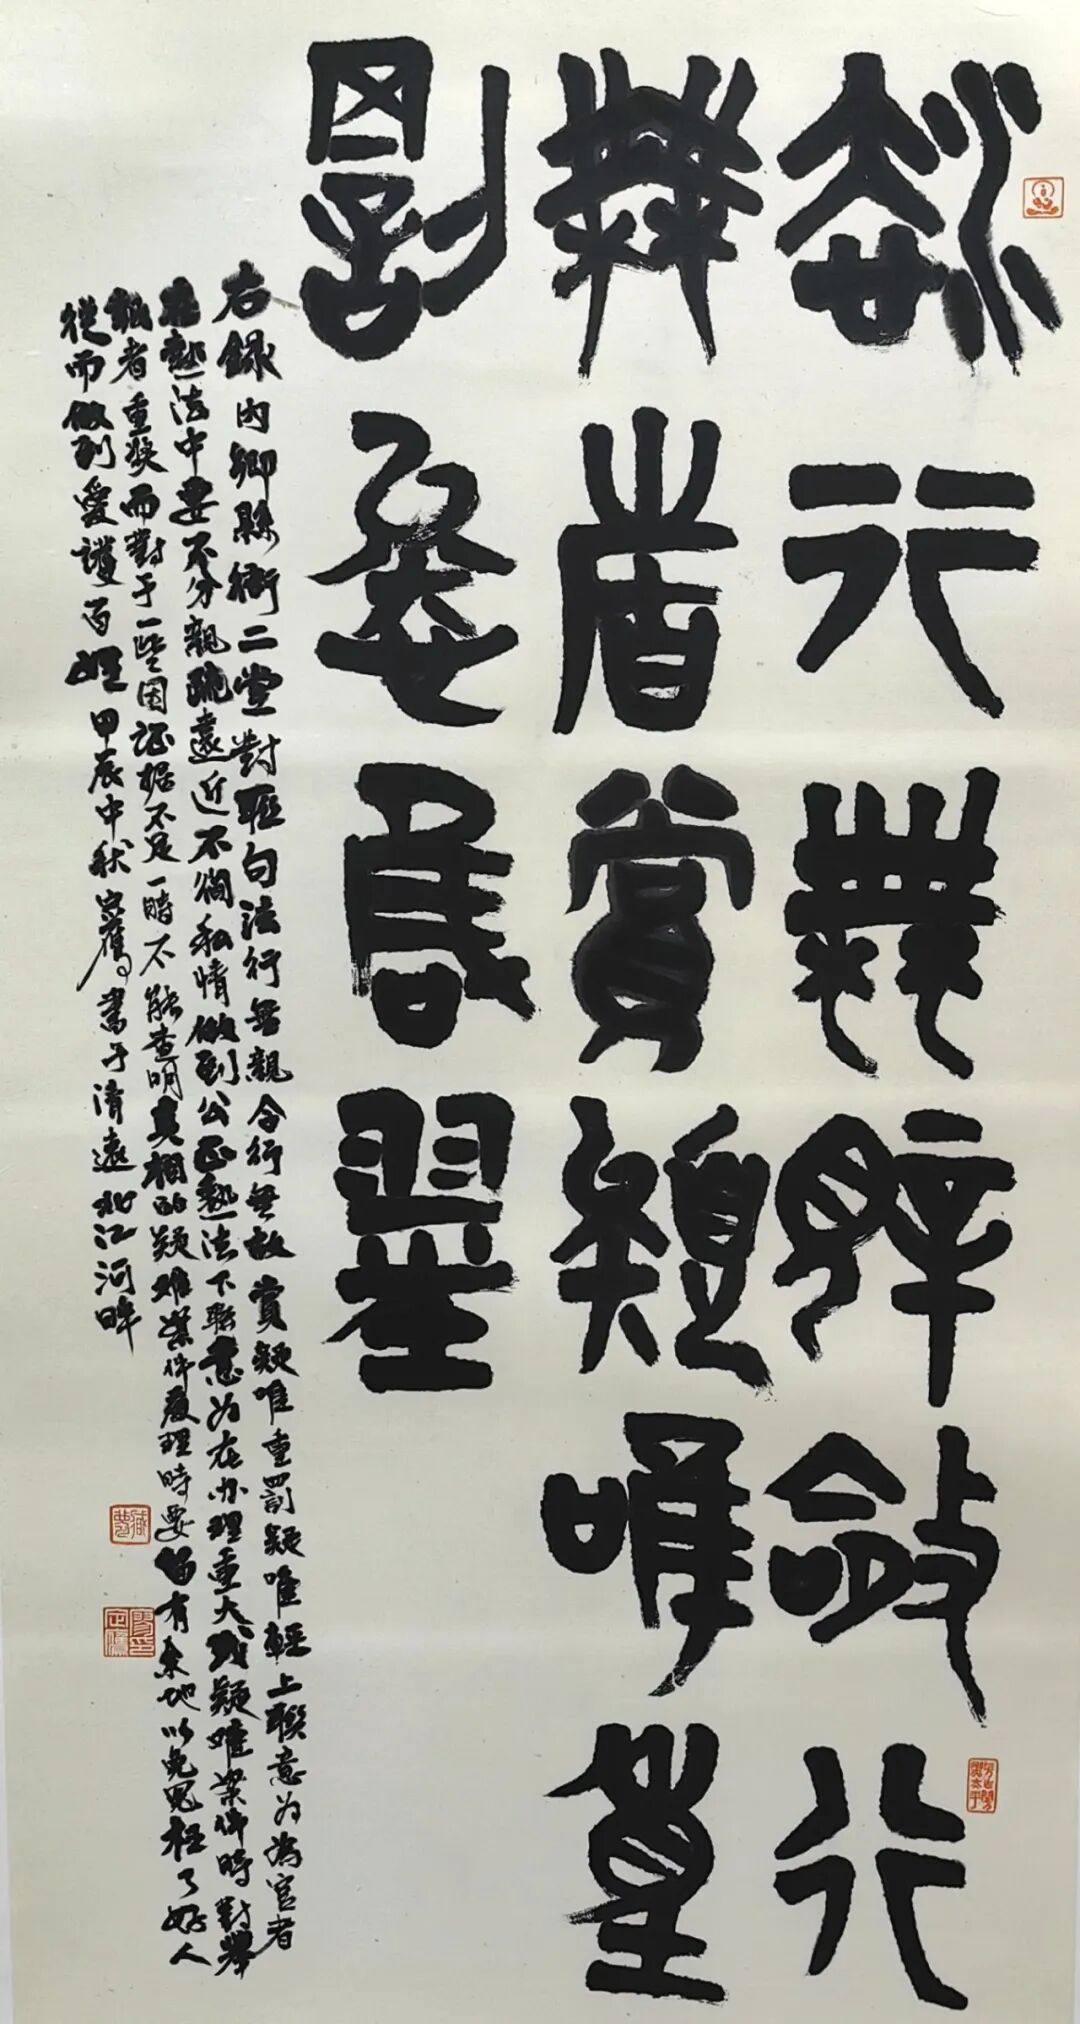 法行無親令行
無故賞疑唯重
罰疑唯輕
右録內鄉縣衙二堂對聯句法行無親令行無故賞疑唯重罰疑唯輕上聯意为為官者
在執法中要不分親疏遠近不徇私情做到公正執法下聯意为在办理重大或疑難案件時對舉
報者重奖而對于一些因证据不足一時不能查明真相的疑难案件處理時要留有余地以免冤枉了好人
從而做到愛護百姓甲辰中秋定鷹書于清遠北江河畔